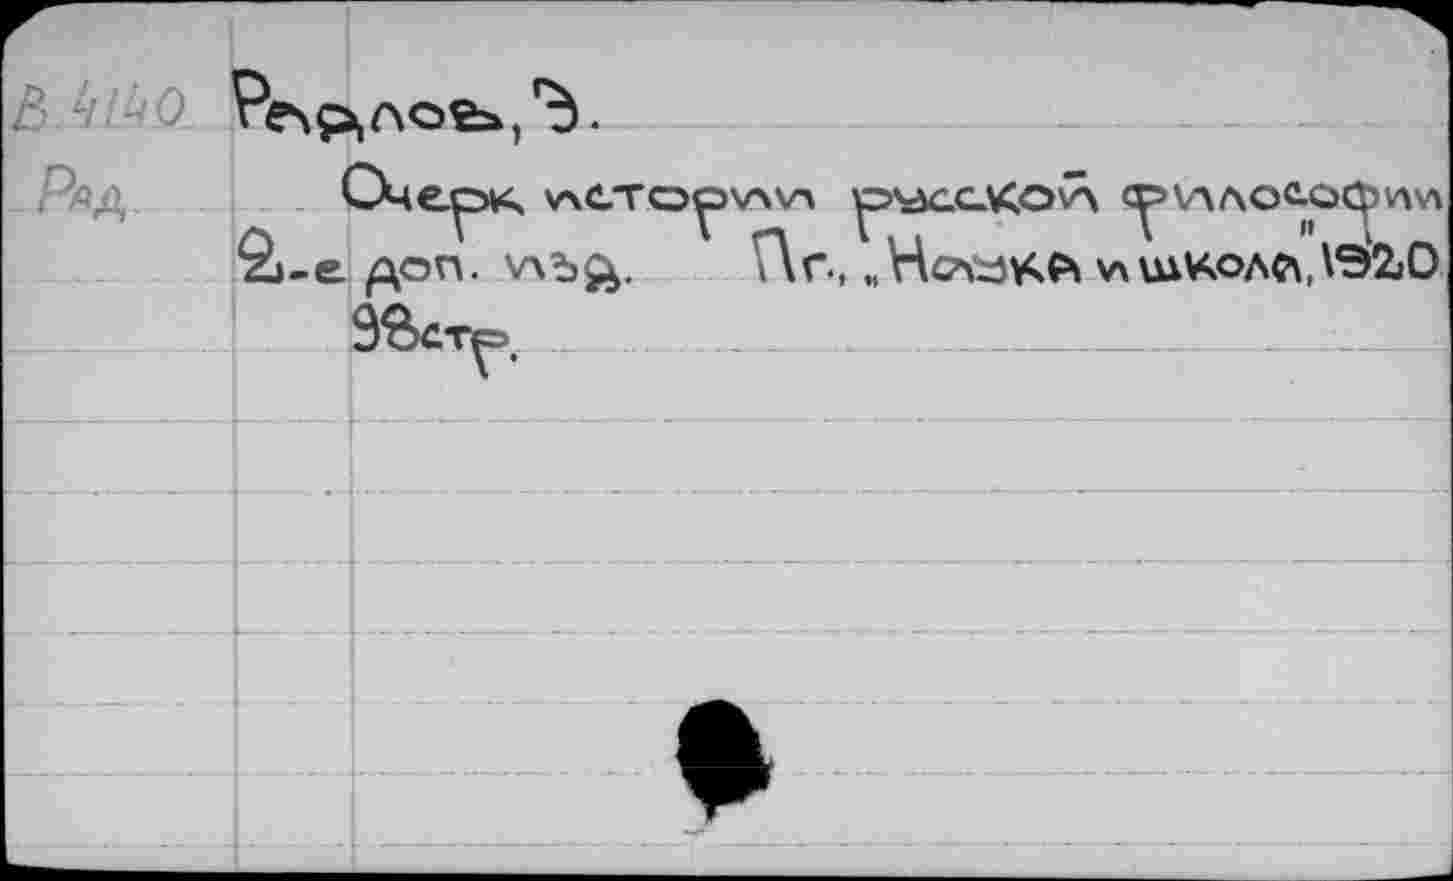 В 4/40 Радлов, Э.
Рад. Очерк истории русской философии
2-е доп. изд. Пг., „Наука и школа", 1920
98стр.